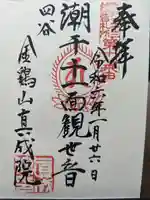 奉拝
令和六年一月廿六日
潮干十一面観世音
四谷
金鶏山真成院